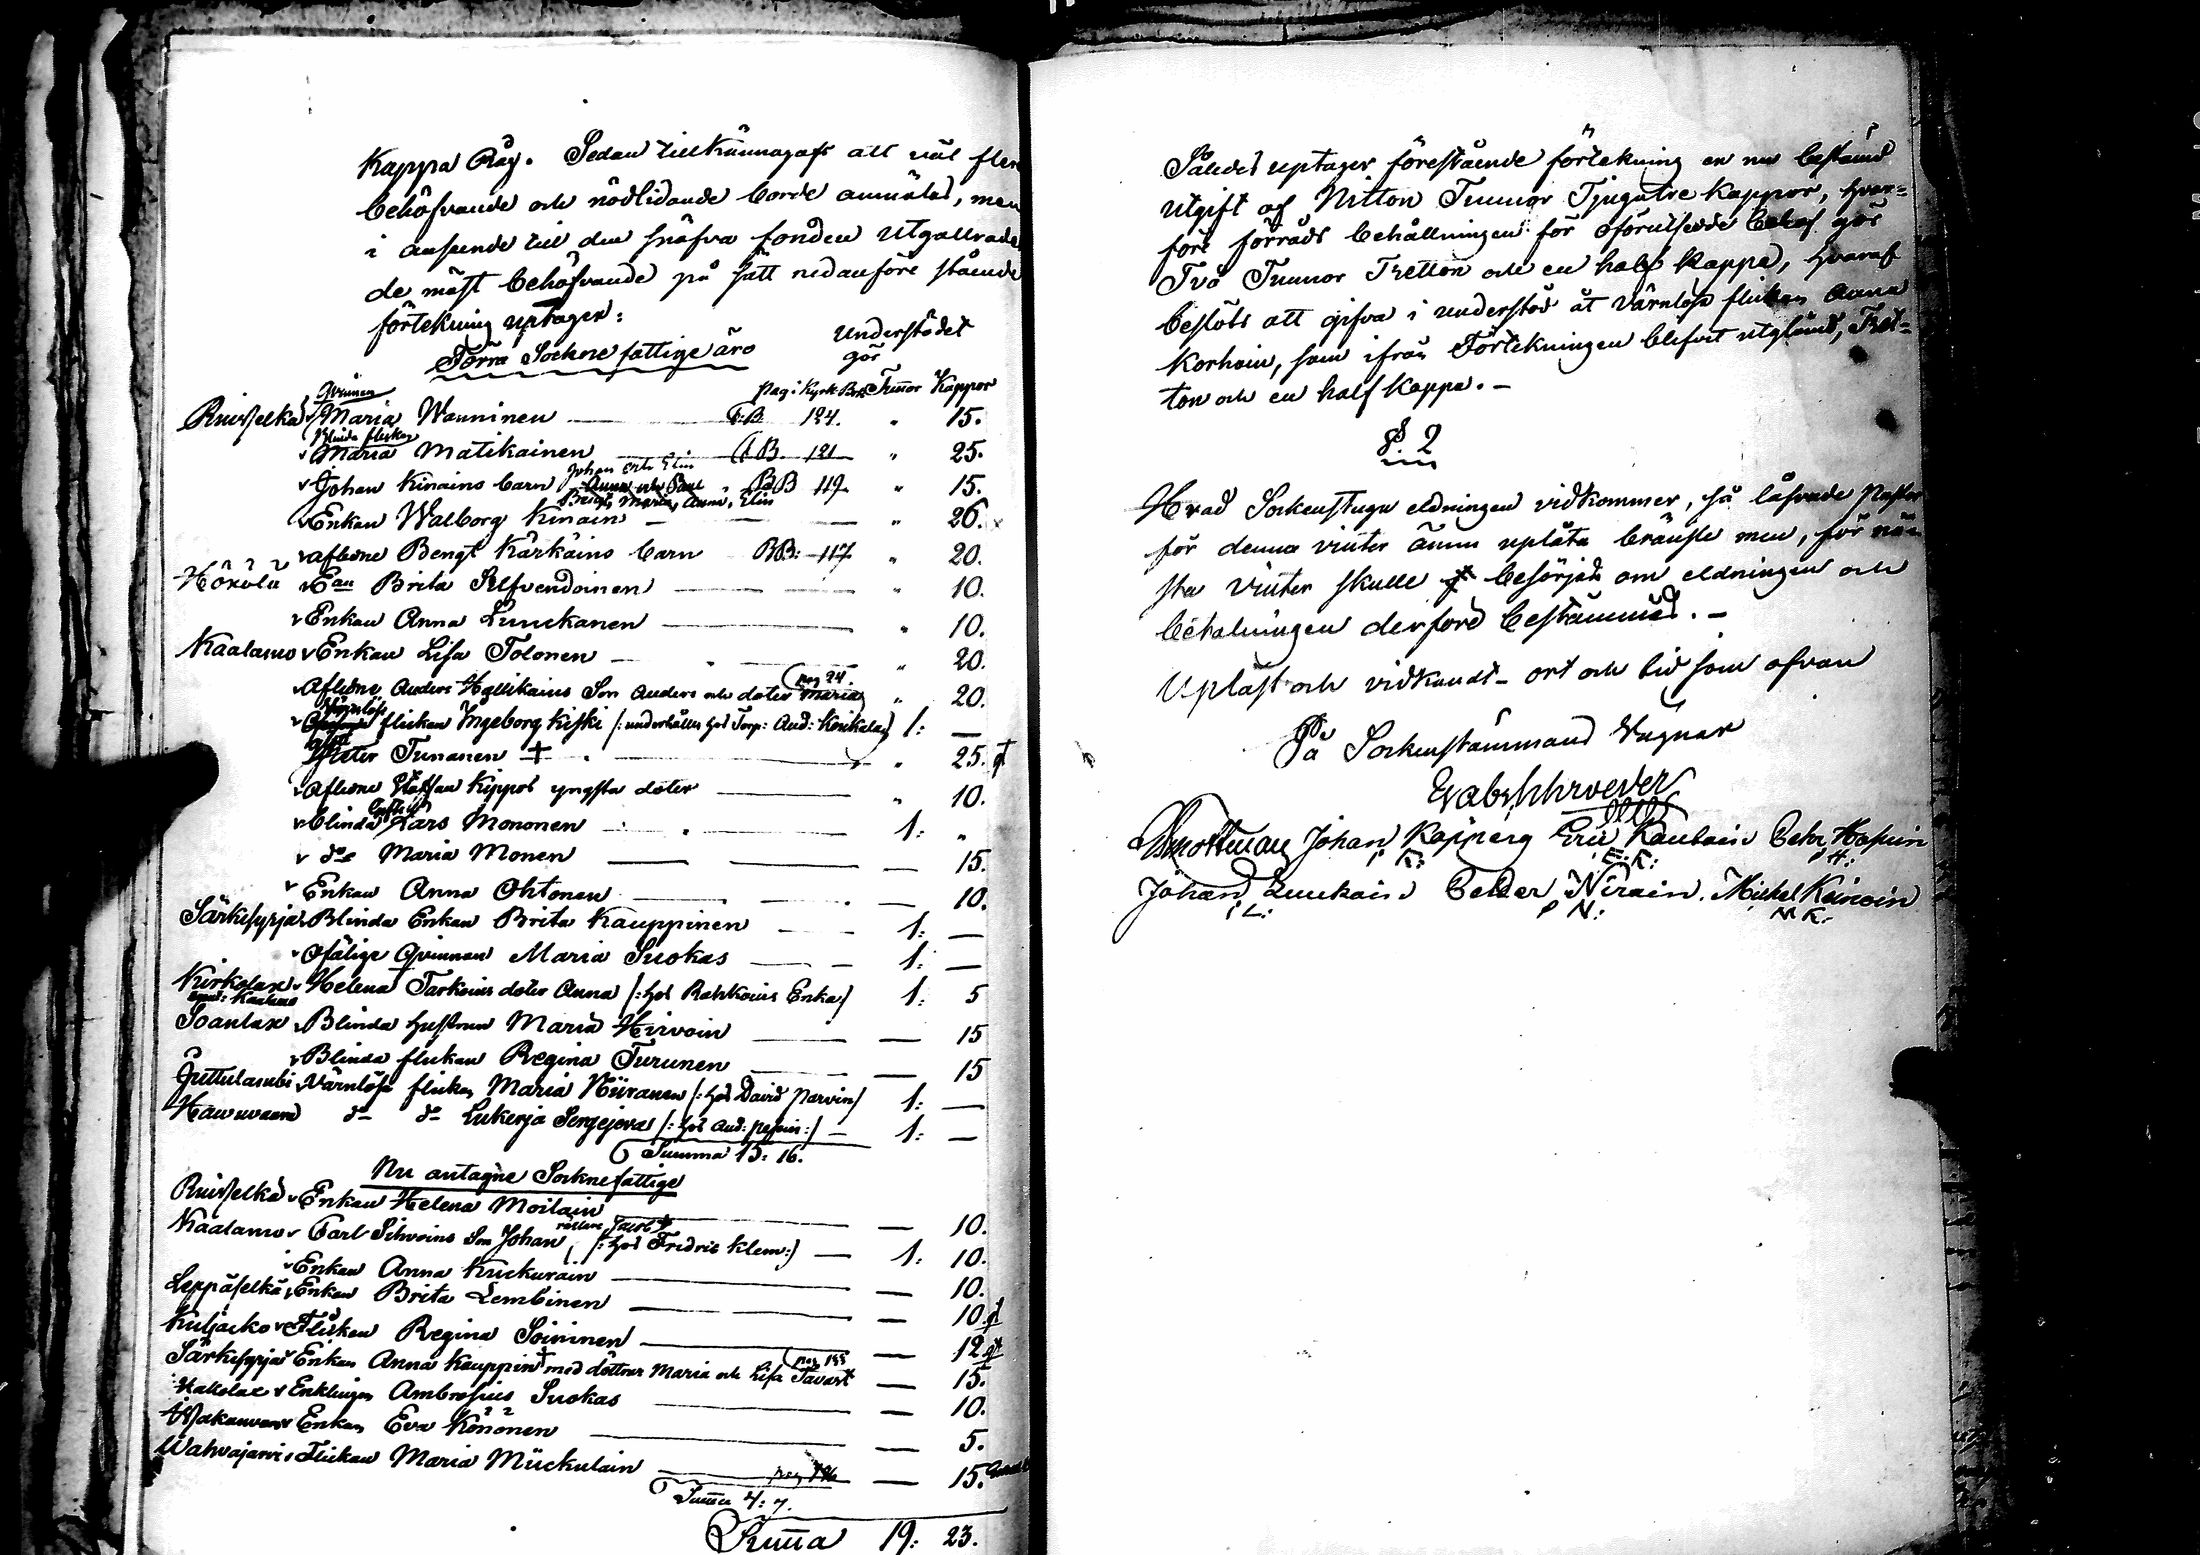 Kappa Råg. Sedan tillkännagafs att väl flere
behöfvande och nödlidande borde anmälas, men
i anseende till den snäfva fonden utgallrades
de mäst behöfvande på sätt nedanföre stående
förtekning uptager:
Förra Sockne fattige äro
Understödet
gör
pag: Kyrk Bok Tunnor Kappor
Qvinnan
Ruisselkä Maria Wanninen B:B. 124. " 15.
Blinda flickan
Maria Matikainen B. 121 " 25.
Johan och Elin
Johan Kinains barn BB 119 " 15.
Bengt, Maria, Anna, Elin
Enkan Walborg Kinain " 26.
Aflidne Bengt Kärkäins barn BB: 117 " 20.
Hörölä Ean Brita Silfvendoinen " 10.
Enkan Anna Luuckanen " 10.
Kaalamo Enkan Lisa Tolonen " 20.
pag 24.
Aflidne Anders Hyllikains Son Anders och doter Maria " 20.
Värnlösa
flickan Ingeborg Kiski /: underhålles hos Torp: And: 1: —
Peter Tunanen + " 25.
Aflidne Staffan Kippos yngsta doter " 10.
blinda Lars Mononen 1: "
do Maria Monen — 15.
Enkan Anna Ohtonen — 10.
Särkisyrjä Blinda Enkan Brita Kauppinen 1: —
Ofälige Qvinnan Maria Suokas 1: —
Kirkolax Helena Tarkains doter Anna /: hos Rahkoins Enka/ 1: 5
Soanlax Blinda hustrun Maria Hirvoin — 15
Blinda flickan Regina Turunen — 15
Juttulambi Värnlösa flickan Maria Niiranen /: hos David Parvin/ 1: —
Hawuvaara do do Lukerja Sergejeva /: hos And: :/ 1: —
Summa 15: 16.
Nu antagne Socknefattige
Ruisselkä Enkan Helena Moilain — 10.
Kaalamo Carl Sihvoins Son Johan /: hos Fridric Klem:/ — 1: 10.
Enkan Anna Kuckurain — 10.
Leppäselkä Enkan Brita Lembinen — 10
Kuljacko Flickan Regina Soininen — 12
pag 188
Särkisyrjä Enkan Anna Kauppin + med döttrar Maria och Lisa Tavast — 15.
Hakolax Enklingen Ambrosius Suokas — 10.
Enkan Eva Könönen — 5.
Wahvajarvi Flickan Maria Mückulain pag — 15.
Summa 4: 7.
Summa 19: 23.
Således uptager förestående förtekning en nu bestämd
utgift af Nitton Tunnor Tjugutre Kappor, hvar=
före förråds behållningen för oförutsedde behof gör
Två Tunnor Tretton och en half Kappa, hvaraf
beslöts att gifva i understöd åt värnlösa flickan Anna
Korhoin, som ifrån Förtekningen blifvit utglömd, Tret=
ton och en half Kappa. —
§ 2
Hvad Sockenstugu eldningen vidkommer, så låfvade Pastor
för denna vinter ännu uplåta bränsle men, för nä
sta vinter skulle besörjas om eldningen och
betalningen derföre bestämmas. —
Upläst och vidkändt — ort och tid som ofvan
På Sockenstämmans Vägnar
Johan Kopperg Eric Kaubain Petr Hapuin
I K: E: K: P H:
Johan Luukain Petter Nirain. Michel Keinoin
I L: P N: M K: